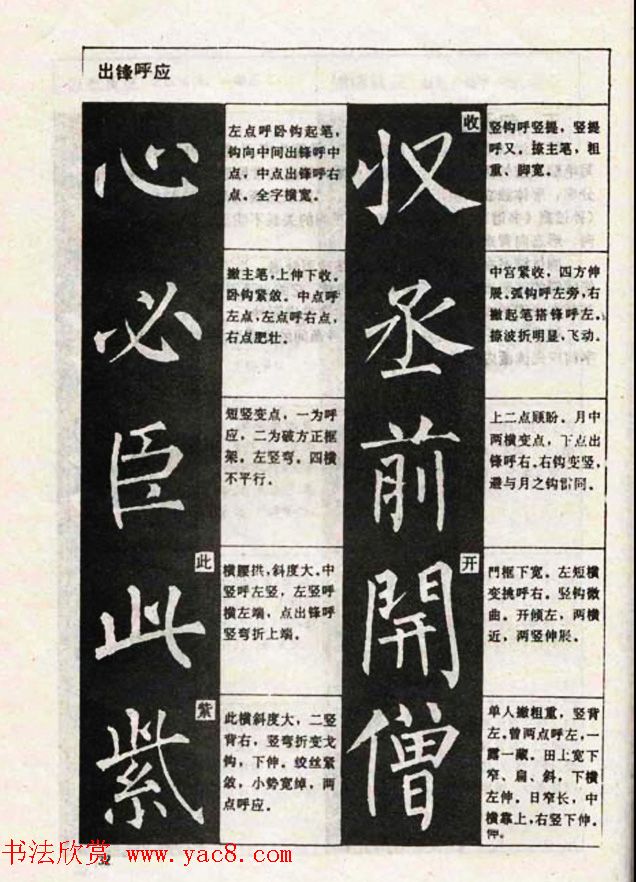 出锋呼应
心
左点呼卧钩起笔，
钩向中间出锋呼中
点。中点出锋呼右
点。全字横宽。
必
撇主笔，上伸下收。
卧钩紧敛。中点呼
左点，左点呼右点，
右点肥壮。
臣
短竖变点，一为呼
应，二为破方正框
架。左竖弯。四横
不平行。
此
此
横腰拱，斜度大。中
竖呼左竖，左竖呼
横左端，点出锋呼
竖弯折上端。
紫
紫
此横斜度大，二竖
背右，竖弯折变戈
钩，下伸。绞丝紧
敛，小势宽绰，两
点呼应。
収
收
竖钩呼竖提，竖提
呼又。捺主笔，粗
重、脚宽。
丞
中宫紧收，四方伸
展。弧钩呼左旁，右
撇起笔搭锋呼左。
捺波折明显、飞动。
前
上二点顾盼。月中
两横变点，下点出
锋呼右。右钩变竖，
避与月之钩雷同。
開
开
門框下宽。左短横
变挑呼右。竖钩微
曲。开倾左，两横
近，两竖伸展。
僧
单人撇粗重，竖背
左。曾两点呼左，一
露一藏。田上宽下
窄、扁、斜，下横
左伸。日窄长，中
横靠上，右竖下伸。
书法欣赏 www.yac8.com
32